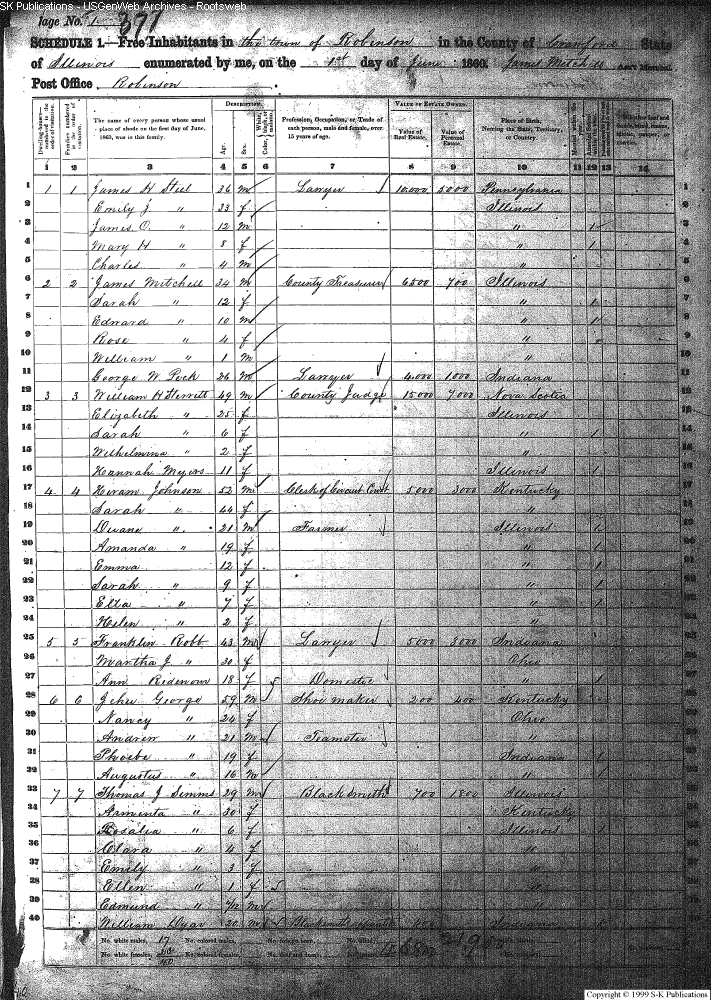 SK Publications - USGenWeb Archives - Rootsweb
Page No. 1 377
SCHEDULE 1.—Free Inhabitants in the town of Robinson in the County of Crawford State
of Illinois enumerated by me, on the 1st day of June 1860. James Mitchell Ass't Marshal
Post Office Robinson
Dwelling-houses— numbered in the order of visitation.
Families numbered in the order of visitation.
The name of every person whose usual place of abode on the first day of June, 1860, was in this family.
DESCRIPTION.
Age.
Sex.
Profession, Occupation, or Trade of each person, male and female, over 15 years of age.
VALUE OF ESTATE OWNED.
Value of Real Estate.
Value of Personal Estate.
Place of Birth, Naming the State, Territory, or Country.
1 2 3 4 5 6 7 8 9 10 11 12 13 14
1 1 1 James H Steel 36 m Lawyer 10,000 5000 Pennsylvania 1
2 Emily J " 33 f Illinois 2
3 James O. " 12 m " 1 3
4 Mary H " 8 f " 1 4
5 Charles " 4 m " 5
6 2 2 James Mitchell 34 m County Treasurer 6500 700 Illinois 6
7 Sarah " 12 f " 1 7
8 Edward " 10 m " 1 8
9 Rose " 4 f " 9
10 William " 1 m " 10
11 George W. Peck 26 m Lawyer 4,000 1000 Indiana 11
12 3 3 William H Sterrett 49 m County Judge 15000 7000 Nova Scotia 12
13 Elizabeth " 25 f Illinois 13
14 Sarah " 6 f " 1 14
15 Wilhelmina " 2 f " 15
16 Hannah Myers 11 f Illinois 1 16
17 4 4 Hiram Johnson 52 m Clerk of Circuit Court 5000 3000 Kentucky 17
18 Sarah " 44 f " 18
19 Duane " 21 m Farmer Illinois 1 19
20 Amanda " 19 f " 1 20
21 Emma 12 f " 1 21
22 Sarah " 9 f " 1 22
23 Etta " 7 f " 1 23
24 Helen " 2 f " 24
25 5 5 Franklin Robb 43 m Lawyer 5000 3000 Indiana 25
26 Martha J " 30 f Ohio 26
27 Ann Ridenour 18 f Domestic " 1 27
28 6 6 Jehu George 59 m Shoe maker 200 400 Kentucky 28
29 Nancy " 24 f Ohio 29
30 Andrew " 21 m Teamster " 30
31 Phoebe " 19 f Indiana 1 31
32 Augustus " 16 m " 1 32
33 7 7 Thomas J Simms 29 m Blacksmith 700 1800 Illinois 33
34 Armenta " 30 f Kentucky 34
35 Rosalia " 6 f Illinois 1 35
36 Clara " 4 f " 36
37 Emily " 3 f " 37
38 Ellen " 1 f " 38
39 Edmund " m 39
40 William Dyar 20 m 40
No. white males, 17 No. colored males, No. foreign born, No. blind,
No. white females, No. colored females, No. deaf and dumb,
40
Copyright © 1999 S-K Publications